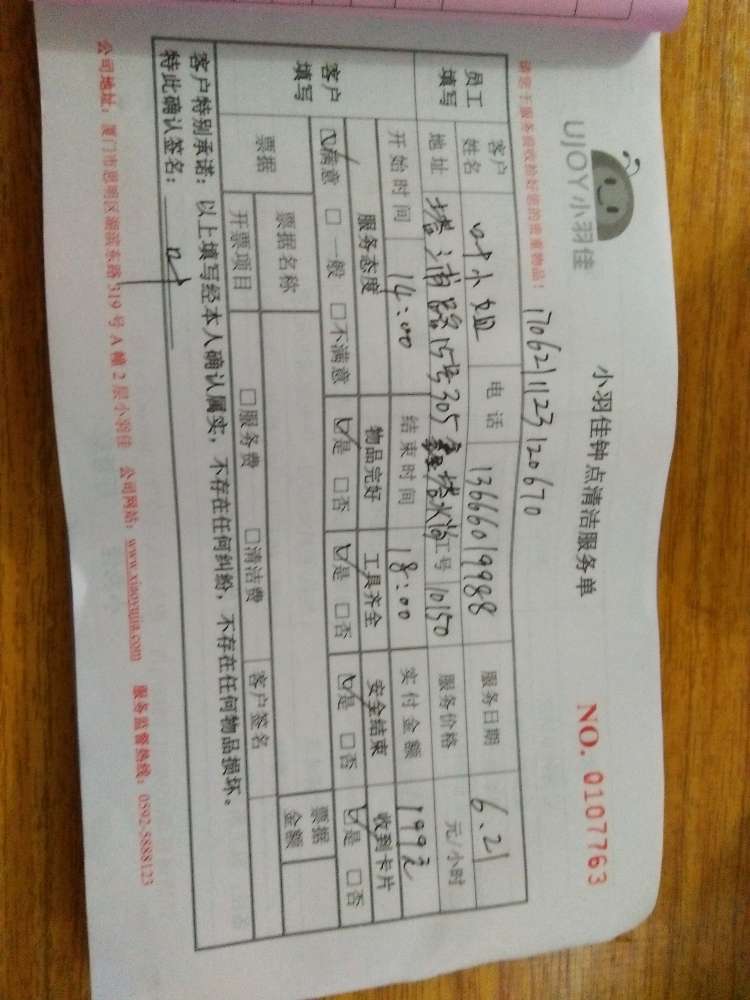 UJOY小羽佳
小羽佳钟点清洁服务单
NO. 0107763
170621123120670
员工填写
客户姓名 叶小姐 电话 13666019988 服务日期 6.21
地址 塔浦路15号305 工号 10150 服务价格 元/小时
开始时间 14:00 结束时间 18:00 实付金额 199元
客户填写
服务态度 物品完好 工具齐全 安全结束 收到卡片
☑满意 □一般 □不满意 ☑是 □否 ☑是 □否 ☑是 □否 ☑是 □否
票据 票据名称 票据金额
开票项目 □服务费 □清洁费 客户签名
客户特别承诺：以上填写经本人确认属实，不存在任何纠纷，不存在任何物品损坏。
特此确认签名： 叶
公司地址：厦门市思明区湖滨东路319号A幢2层小羽佳 公司网站：www.xiaoyujia.com 服务监督热线：0592-5888123